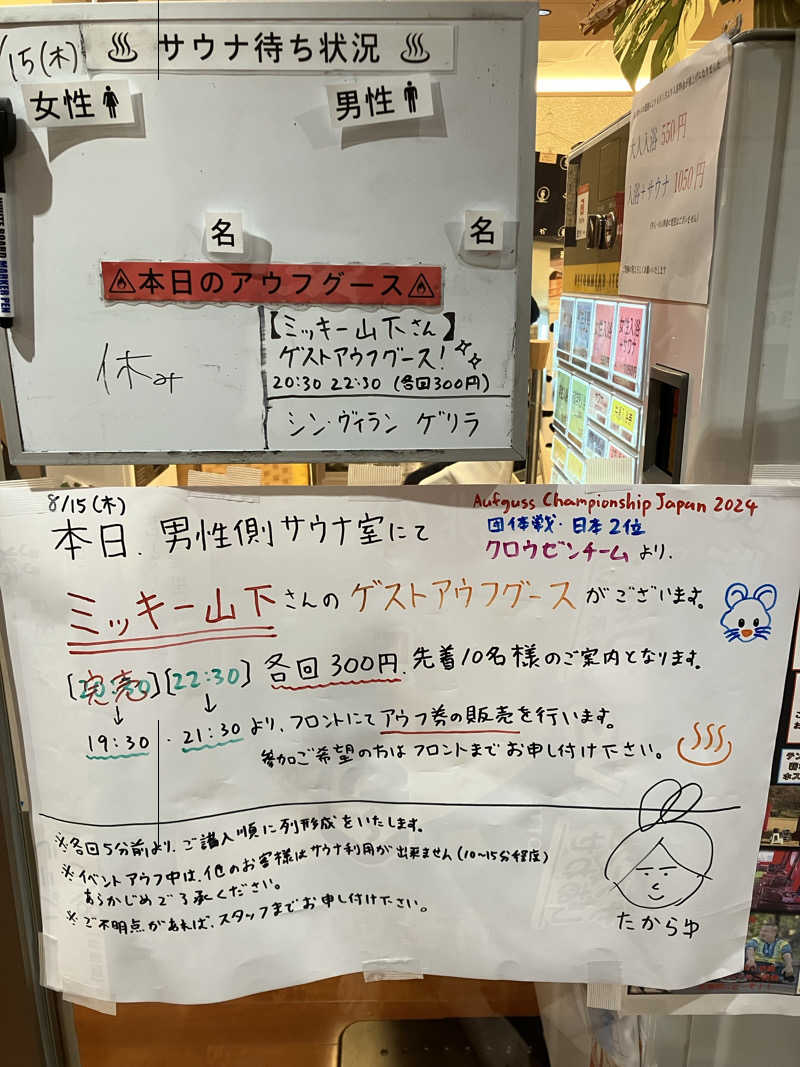 /15(木)
サウナ待ち状況
女性
男性
名
名
本日のアウフグース
休み
【ミッキー山下さん】
ゲストアウフグース!
20:30 22:30 (各回300円)
シン・ヴィラン ゲリラ
WHITE BOARD MARKER PEN
大人入浴 550円
入浴+サウナ 1050円
女性入浴
+サウナ
8/15(木)
本日、男性側サウナ室にて
Aufguss Championship Japan 2024
団体戦・日本2位
クロウゼンチームより、
ミッキー山下さんのゲストアウフグースがございます。
[完売][22:30]各回300円、先着10名様のご案内となります。
↓ ↓
19:30・21:30より、フロントにてアウフ券の販売を行います。
参加ご希望の方はフロントまでお申し付け下さい。
※各回5分前より、ご購入順に列形成をいたします。
※イベントアウフ中は、他のお客様はサウナ利用が出来ません(10~15分程度)
あらかじめご了承ください。
※ご不明点があれば、スタッフまでお申し付け下さい。
たからゆ